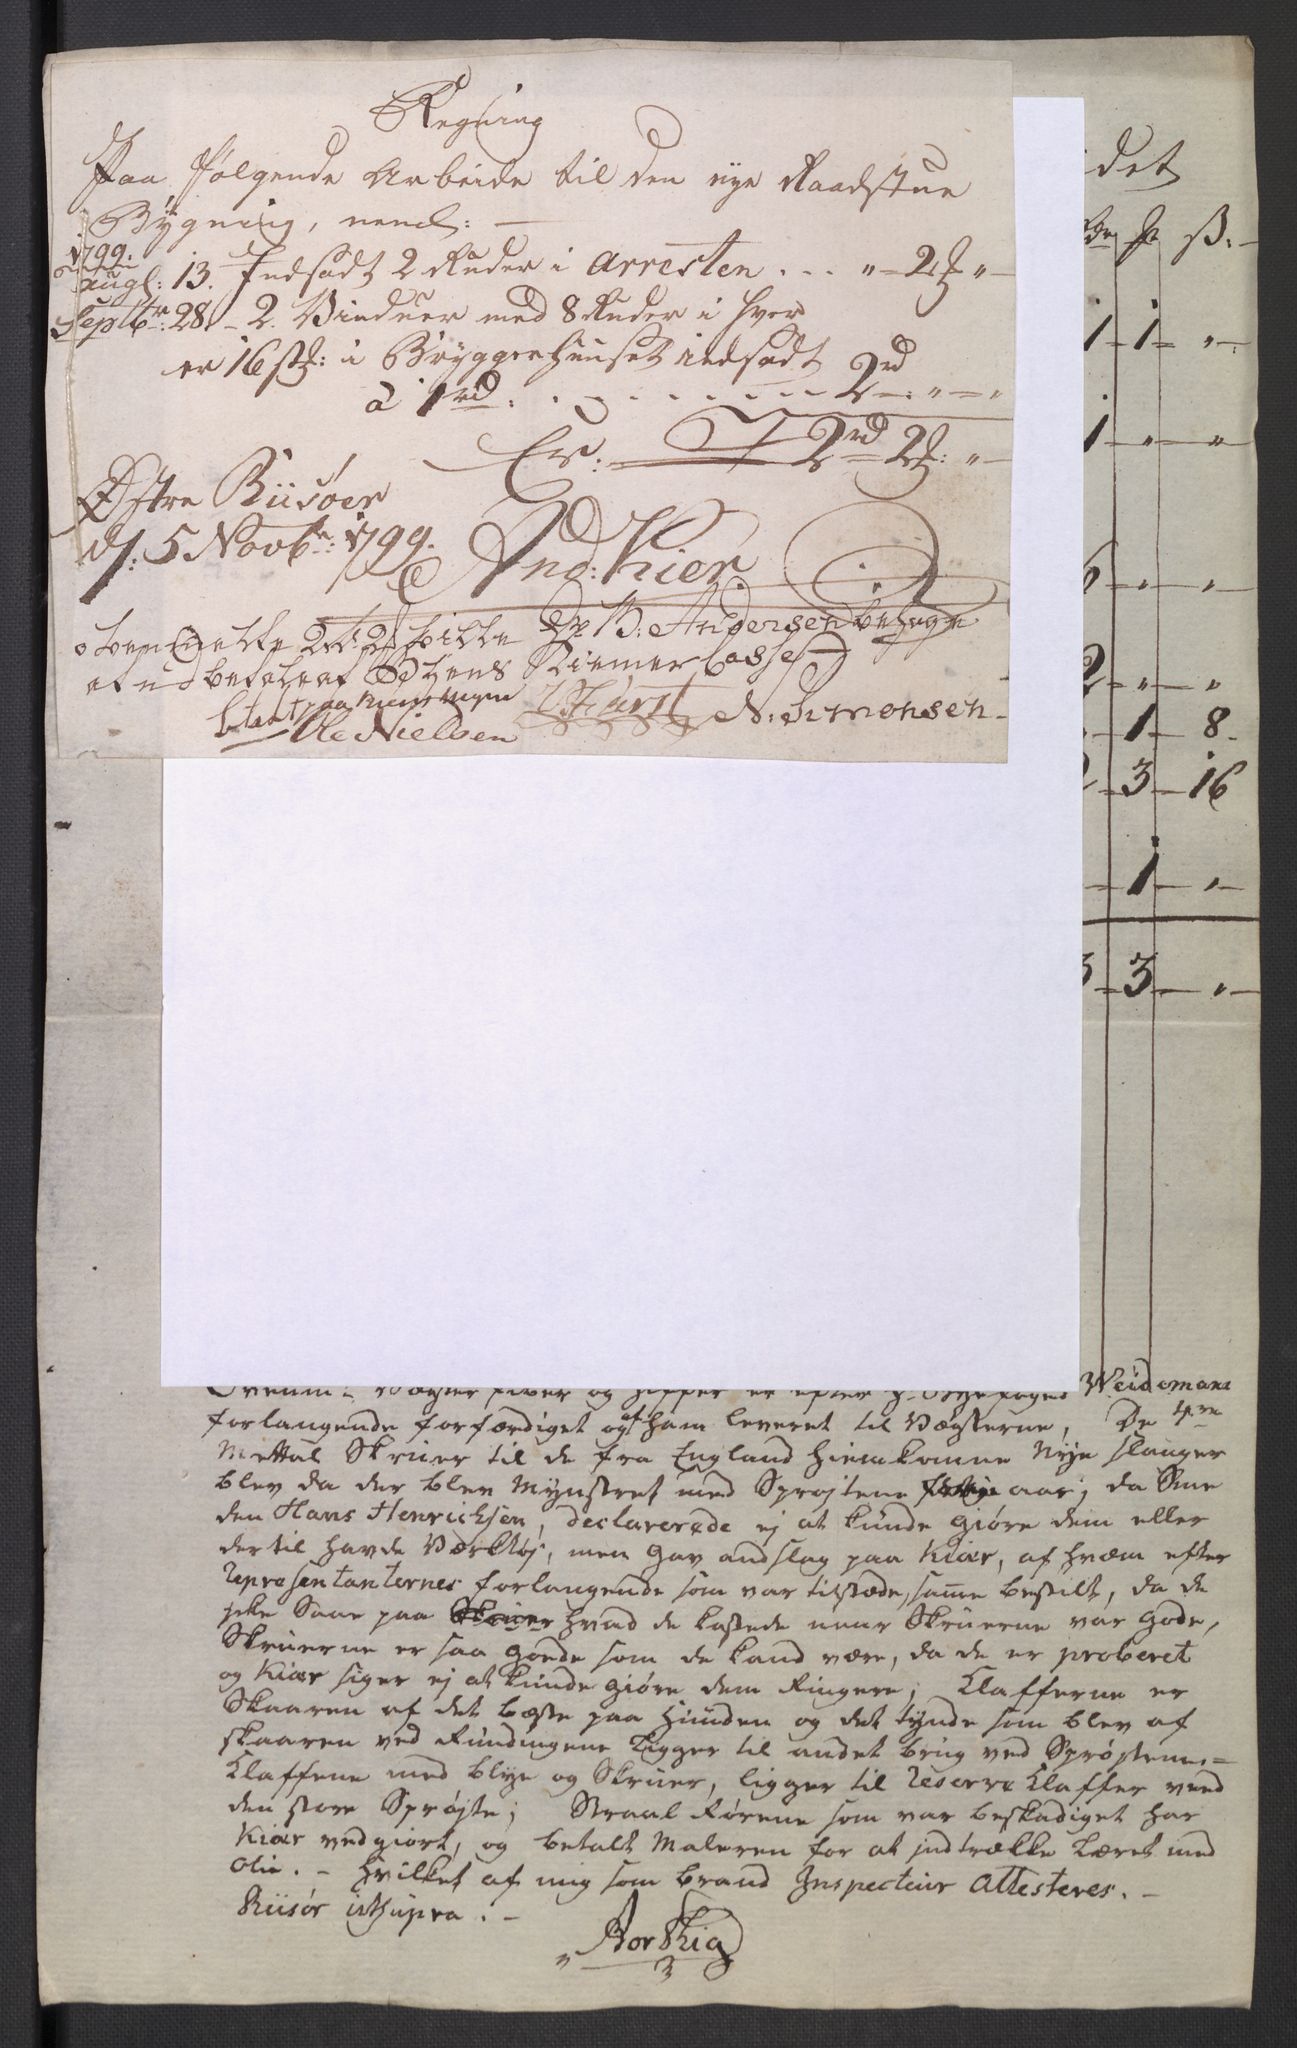 Regning
Paa følgende Arbeide til den nye Raadstue
Bÿgning, neml: —
1799.
Augl: 13. Indsadt 2 Ruder i Arresten . . . " – 2 ₰ " –
Septbr: 28. – 2. Vinduer med 8 Ruder i hver
er 16 stk: i Brÿggerhuuset indsadt
à 1 rd . . . . . . . . 2 rd – " – "
Er. — 2 rd 2 ₰: " –
Østre Riisöer
d: 5 Novbr: 1799.
And: Kier
B: Andersen behage
at udbetale af Bÿens Kiemer Casse
N: Simonsen –
betalt
Ole Nielsen
det
ß. –
1 – 1 – " –
1 – " – "
– " – "
2 – " – "
– 1 – 8 –
– 3 – 16
– 1 – "
3 – 3 – " –
og er efter Weidemans
forlangende forfærdiget og af ham leveret til Vægterne, De
Mettal Skruer til de fra England hiemkomne Nye slanger
blev da der blev Mynstret med Sprøjtene aar; da Sme
den Hans Henrichsen, declarerede ej at kunde giøre dem eller
dertil havde Værktøj, men gav andslag paa Kiær, af hvem efter
Representanternes forlangende som var tilstæde, samme bestilt, da de
ikke Saae paa hvad de kostede naar Skruerne var gode,
Skruerne er saa goede som de kand være, da de er proberet
og Kiær siger ej at kunde giøre dem Ringere; Klafferne er
Skaaren af det beste paa Huuden og det tynde som blev af
skaaren ved Rundingene ligger til andet brug ved Sprøjtene, =
Klaffene med blye og Skruer, ligger til Reserve Klaffer ved
den store Sprøjte; Straal Rørene som var beskadiget har
Kiær vedgiort, og betalt Maleren for at indtrække Læret med
Olie. – Hvilket af mig som brand Inspecteur Attesteres. –
Riisør ut supra . –